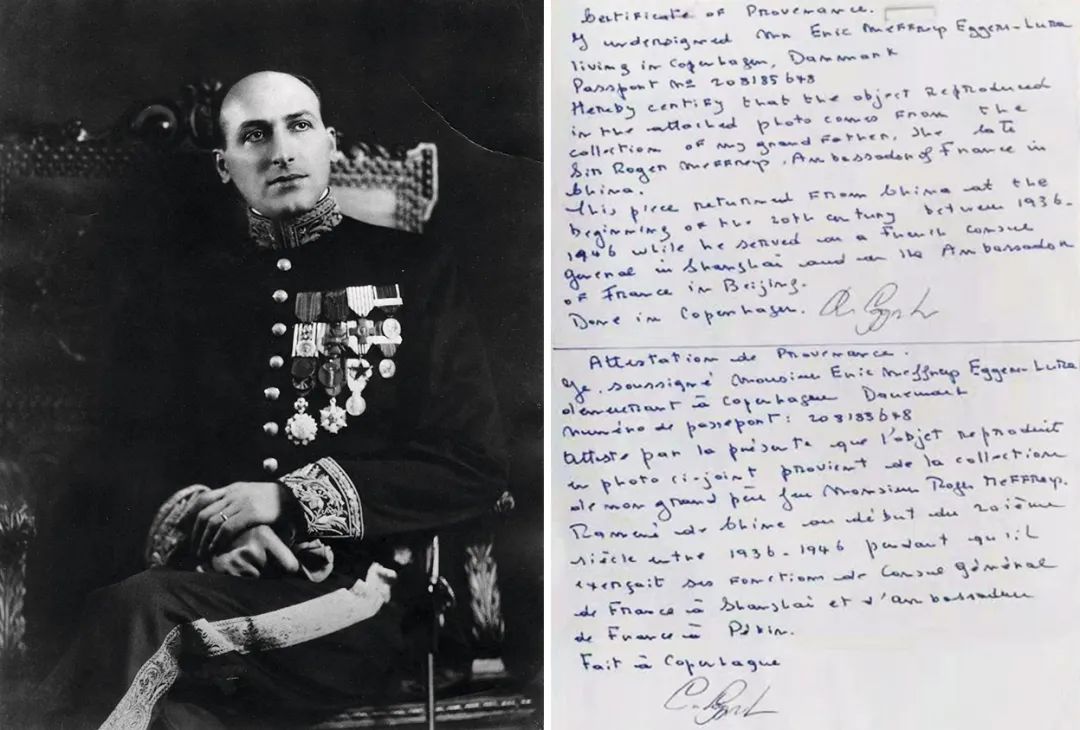 Certificate of Provenance.
I undersigned Mr Eric Meffreys Eggers-Lura
living in Copenhagen, Danmark
Passport No 208185648
Hereby certify that the object reproduced
in the attached photo comes from the
collection of my grand father, the late
Sir Roger Meffreys, Ambassador of France in
China.
This piece returned from China at the
beginning of the 20th century between 1936-
1946 while he served as a French Consul
General in Shanghai and as the Ambassador
of France in Beijing.
Done in Copenhagen.
Attestation de Provenance.
Je soussigné Monsieur Eric Meffreys Eggers-Lura
demeurant à Copenhague Danemark
numéro de passeport: 208183648
Atteste par la présente que l'objet reproduit
en photo ci-joint provient de la collection
de mon grand père feu Monsieur Roger Meffreys.
Ramené de Chine au début du 20ième
siècle entre 1936-1946 pendant qu'il
exerçait ses fonctions de Consul Général
de France à Shanghai et d'ambassadeur
de France à Pékin.
Fait à Copenhague